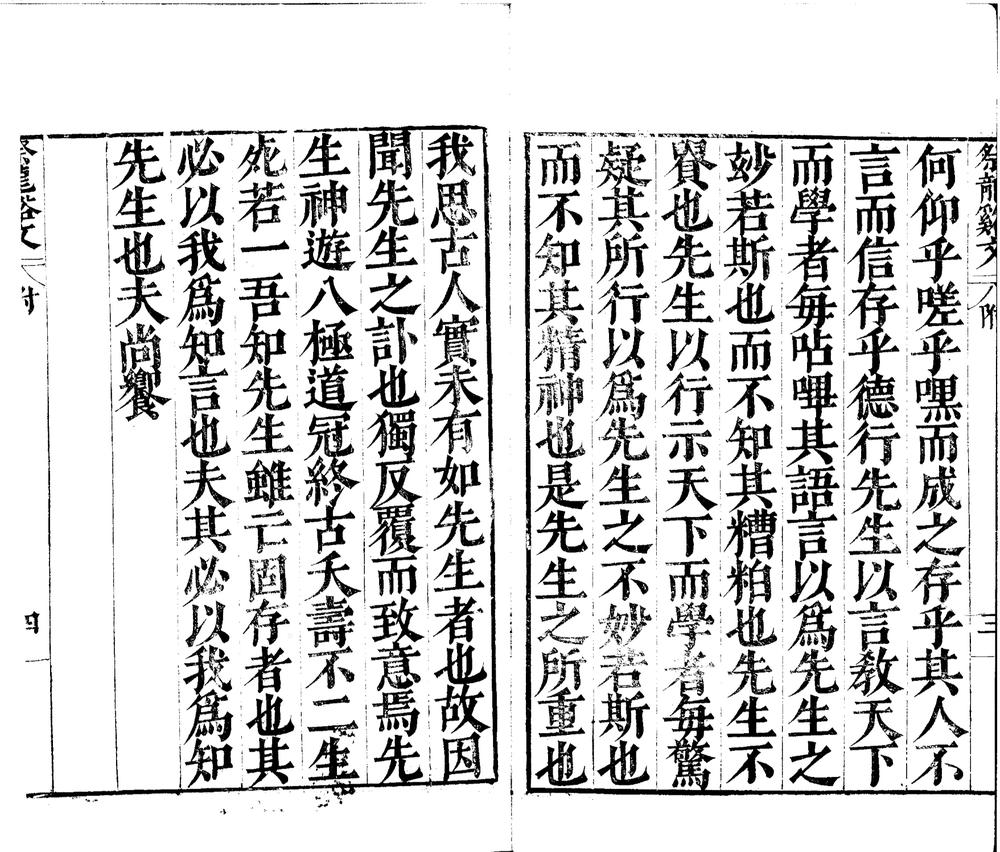 祭龍谿文 附 三
何仰乎嗟乎嘿而成之存乎其人不
言而信存乎德行先生以言教天下
而學者每呫嗶其語言以爲先生之
妙若斯也而不知其糟粕也先生不
貴也先生以行示天下而學者每驚
疑其所行以爲先生之不妙若斯也
而不知其精神也是先生之所重也
我思古人實未有如先生者也故因
聞先生之訃也獨反覆而致意焉先
生神遊八極道冠終古夭壽不二生
死若一吾知先生雖亡固存者也其
必以我爲知言也夫其必以我爲知
先生也夫尚饗
祭龍谿文 附 四